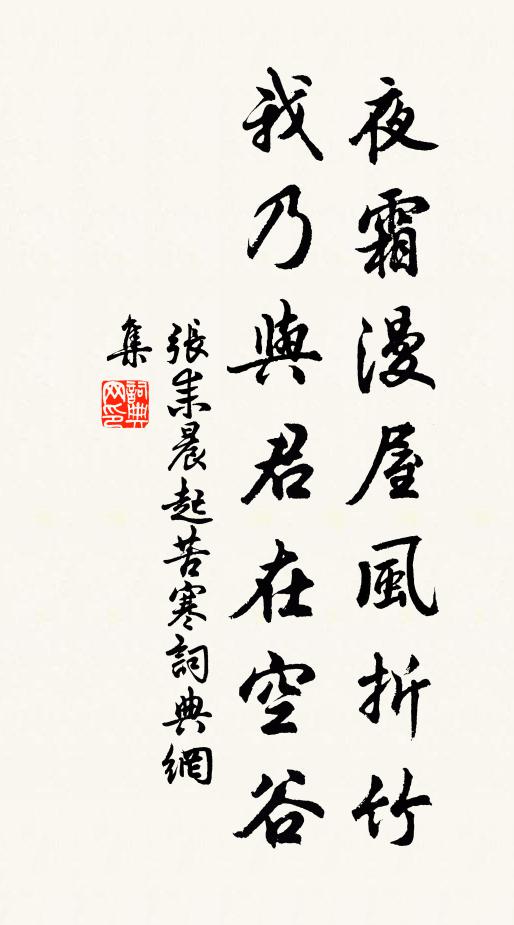 夜霜漫屋風折竹
我乃與君在空谷
張耒晨起苦寒詞典網
集
詞典网印